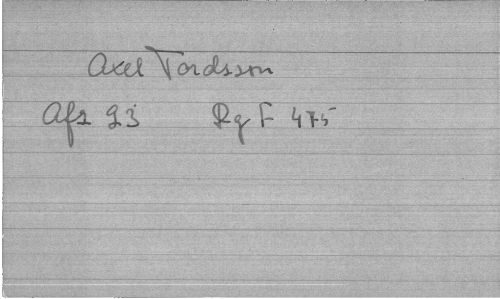 Axel Tordsson
Afs 93 Rg F 475